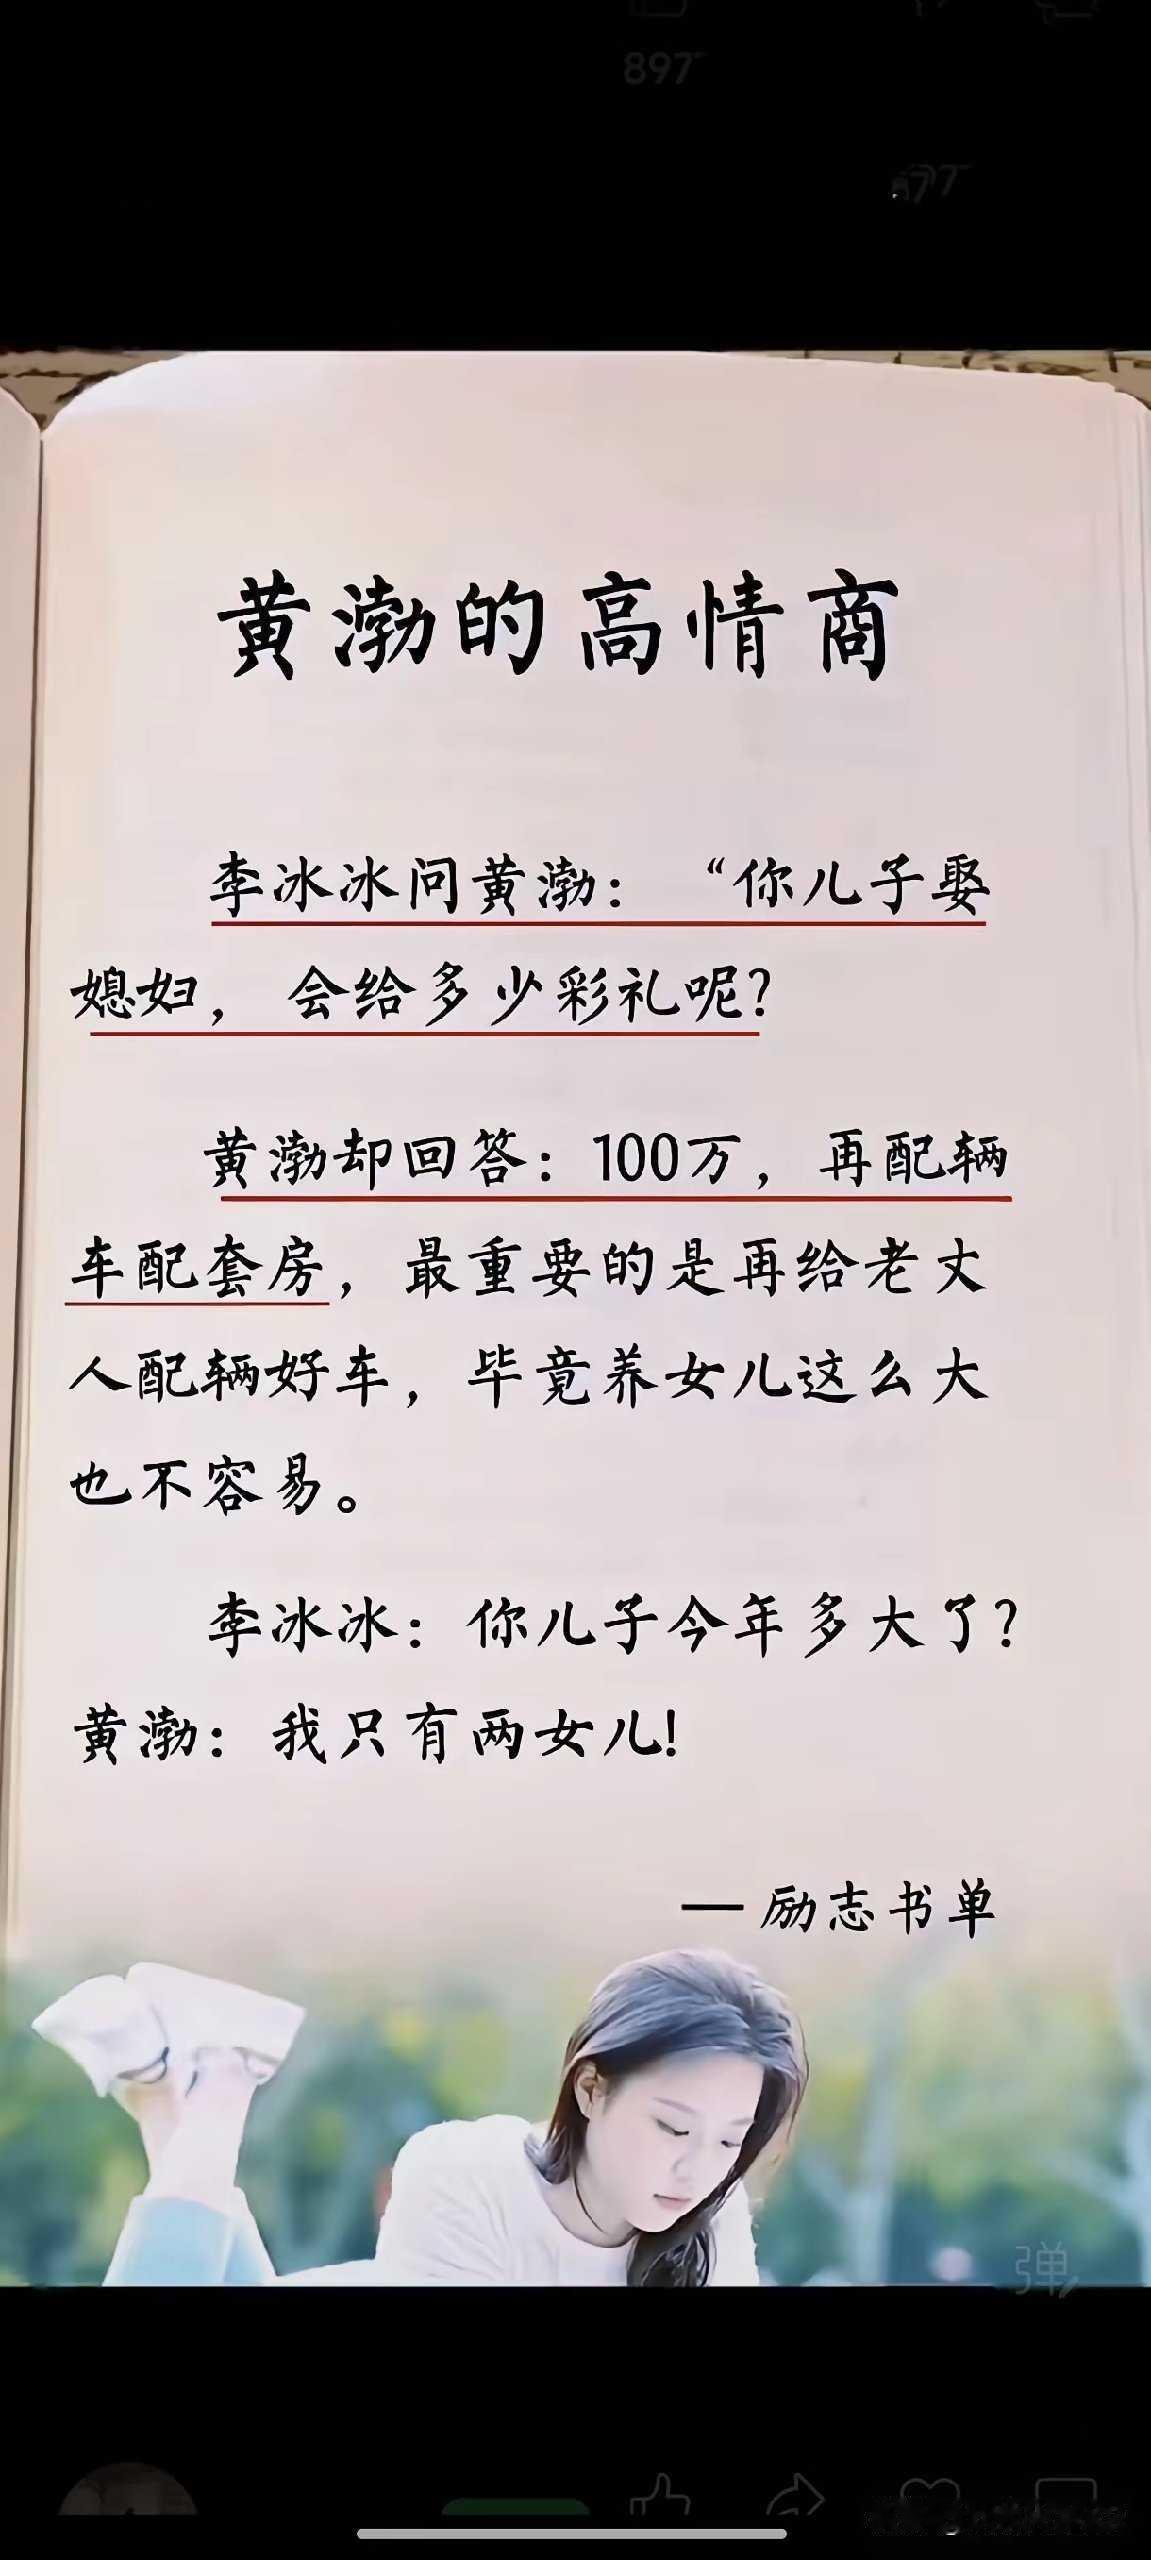 897
黄渤的高情商
李冰冰问黄渤：“你儿子娶
媳妇，会给多少彩礼呢？
黄渤却回答：100万，再配辆
车配套房，最重要的是再给老丈
人配辆好车，毕竟养女儿这么大
也不容易。
李冰冰：你儿子今年多大了？
黄渤：我只有两女儿！
— 励志书单
弹